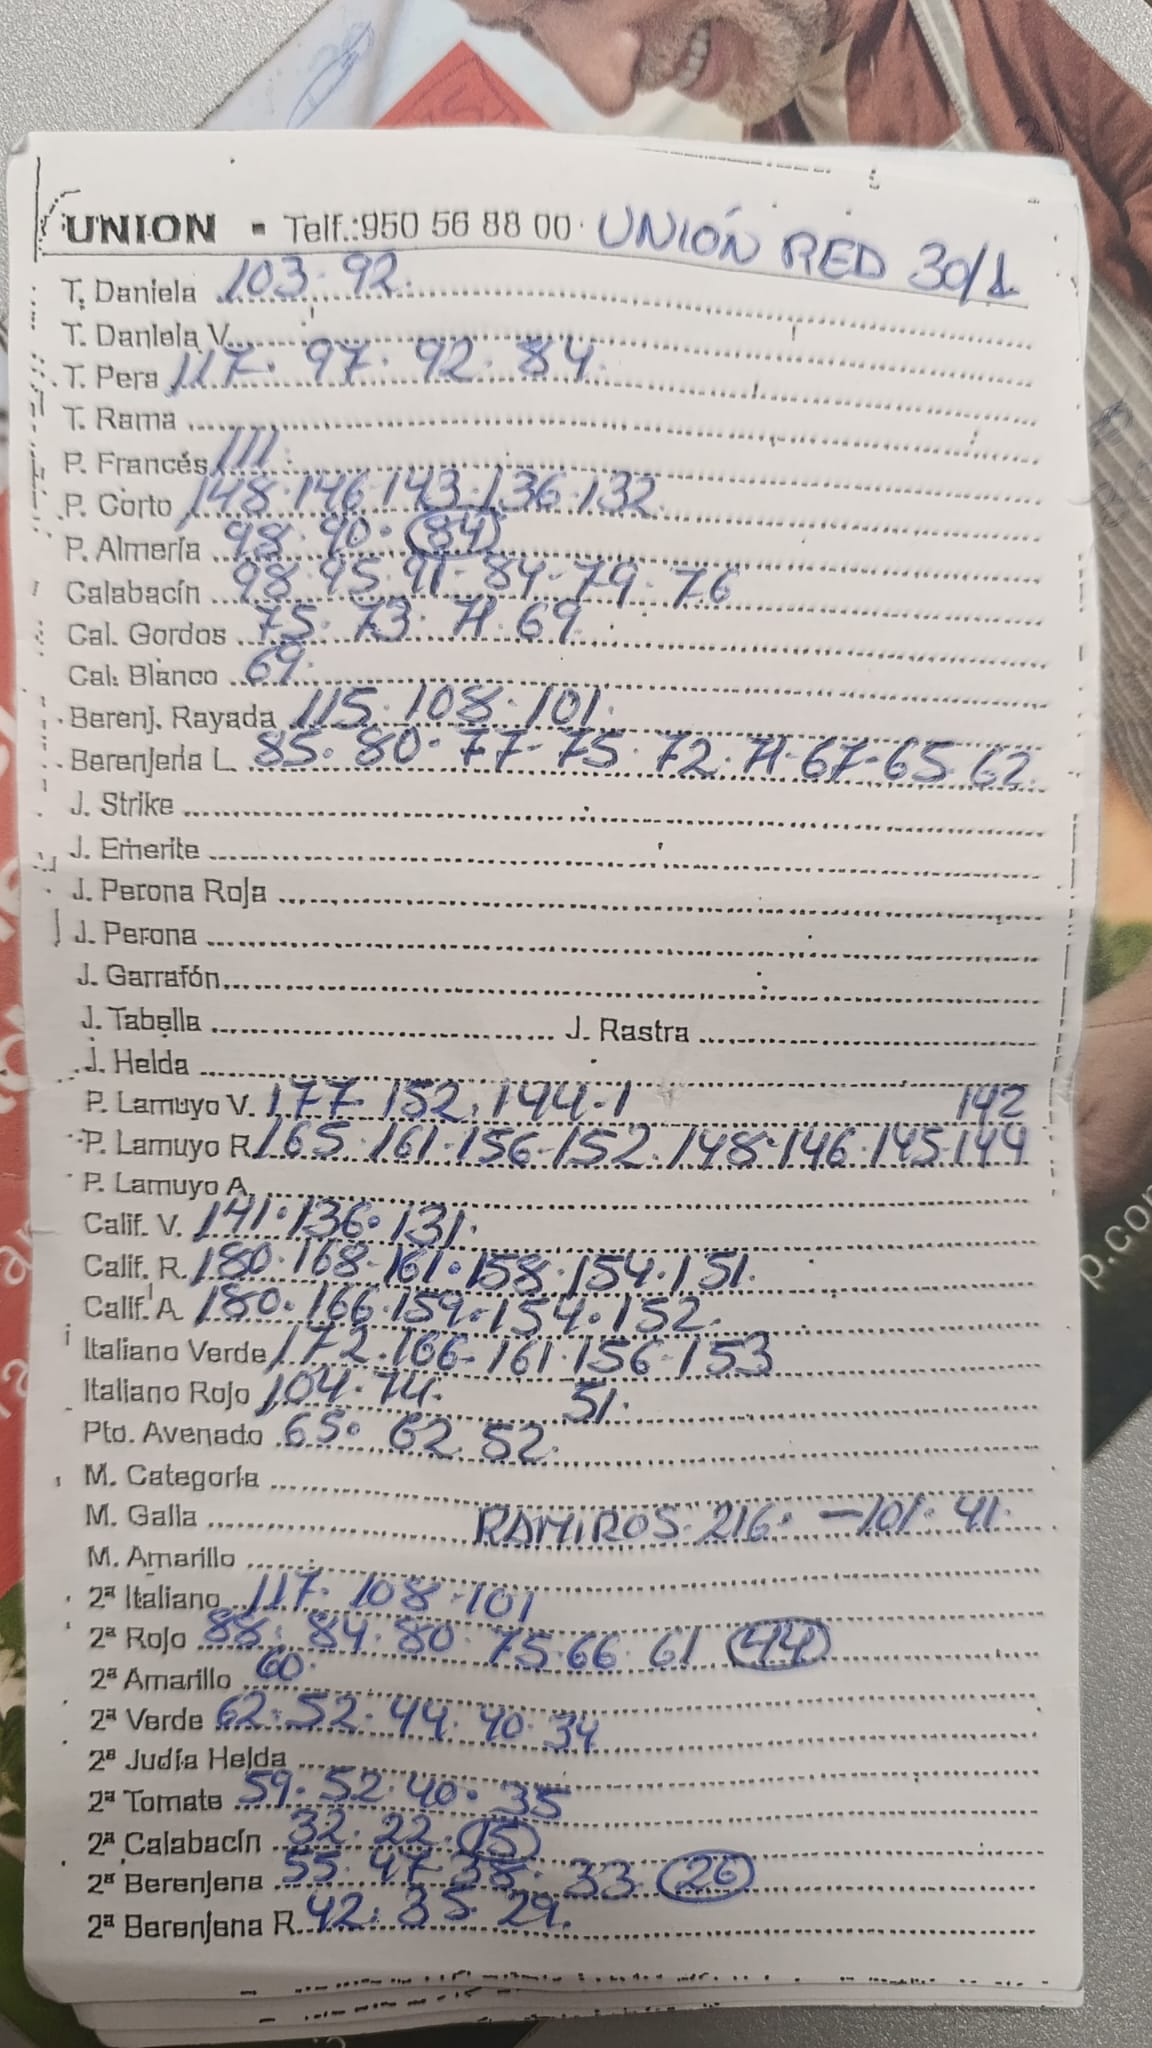 UNION - Telf.:950 56 88 00 · UNIÓN RED 30/1
T. Daniela 103 · 92.
T. Daniela V.
T. Pera 117 · 97 · 92 · 84.
T. Rama
P. Francés 111.
P. Corto 148 · 146 · 143 · 136 · 132
P. Almería 98 · 90 · 84
Calabacín 98 · 95 · 91 - 84 - 79 · 76
Cal. Gordos 75 · 73 · 71 · 69.
Cal. Blanco 69.
Berenj. Rayada 115 · 108 · 101.
Berenjena L. 85 · 80 · 77 - 75 · 72 · 71 · 67 · 65 · 62.
J. Strike
J. Emerite
J. Perona Roja
J. Perona
J. Garrafón
J. Tabella J. Rastra
J. Helda
P. Lamuyo V. 177 - 152 · 144 - 1 142
P. Lamuyo R. 165 · 161 - 156 - 152 · 148 · 146 · 145 · 144
P. Lamuyo A.
Calif. V. 141 · 136 · 131.
Calif. R. 180 · 168 - 161 · 158 · 154 · 151.
Calif. A. 180 · 166 · 159 · 154 · 152.
Italiano Verde 172 · 166 - 161 · 156 - 153
Italiano Rojo 104 · 74. 51.
Pto. Avenado 65 · 62 52.
M. Categoría
M. Galla RAMIROS · 216 · - 101 · 41.
M. Amarillo
2ª Italiano 117 · 108 · 101
2ª Rojo 88 · 84 · 80 · 75 · 66 61 44
2ª Amarillo 60.
2ª Verde 62 · 52 · 44 · 40 · 34
2ª Judía Helda
2ª Tomate 59 · 52 · 40 · 35
2ª Calabacín 32 · 22 · 15
2ª Berenjena 55 · 47 38 · 33 26
2ª Berenjena R. 42 · 35 · 29.
p.com